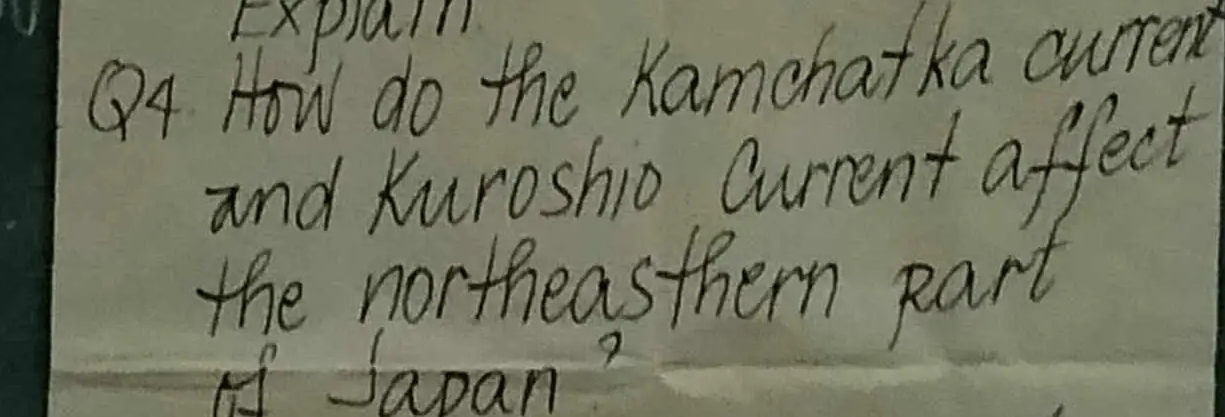 Explain
Q4 How do the Kamchatka current
and Kuroshio Current affect
the northeasthern part
of Japan?